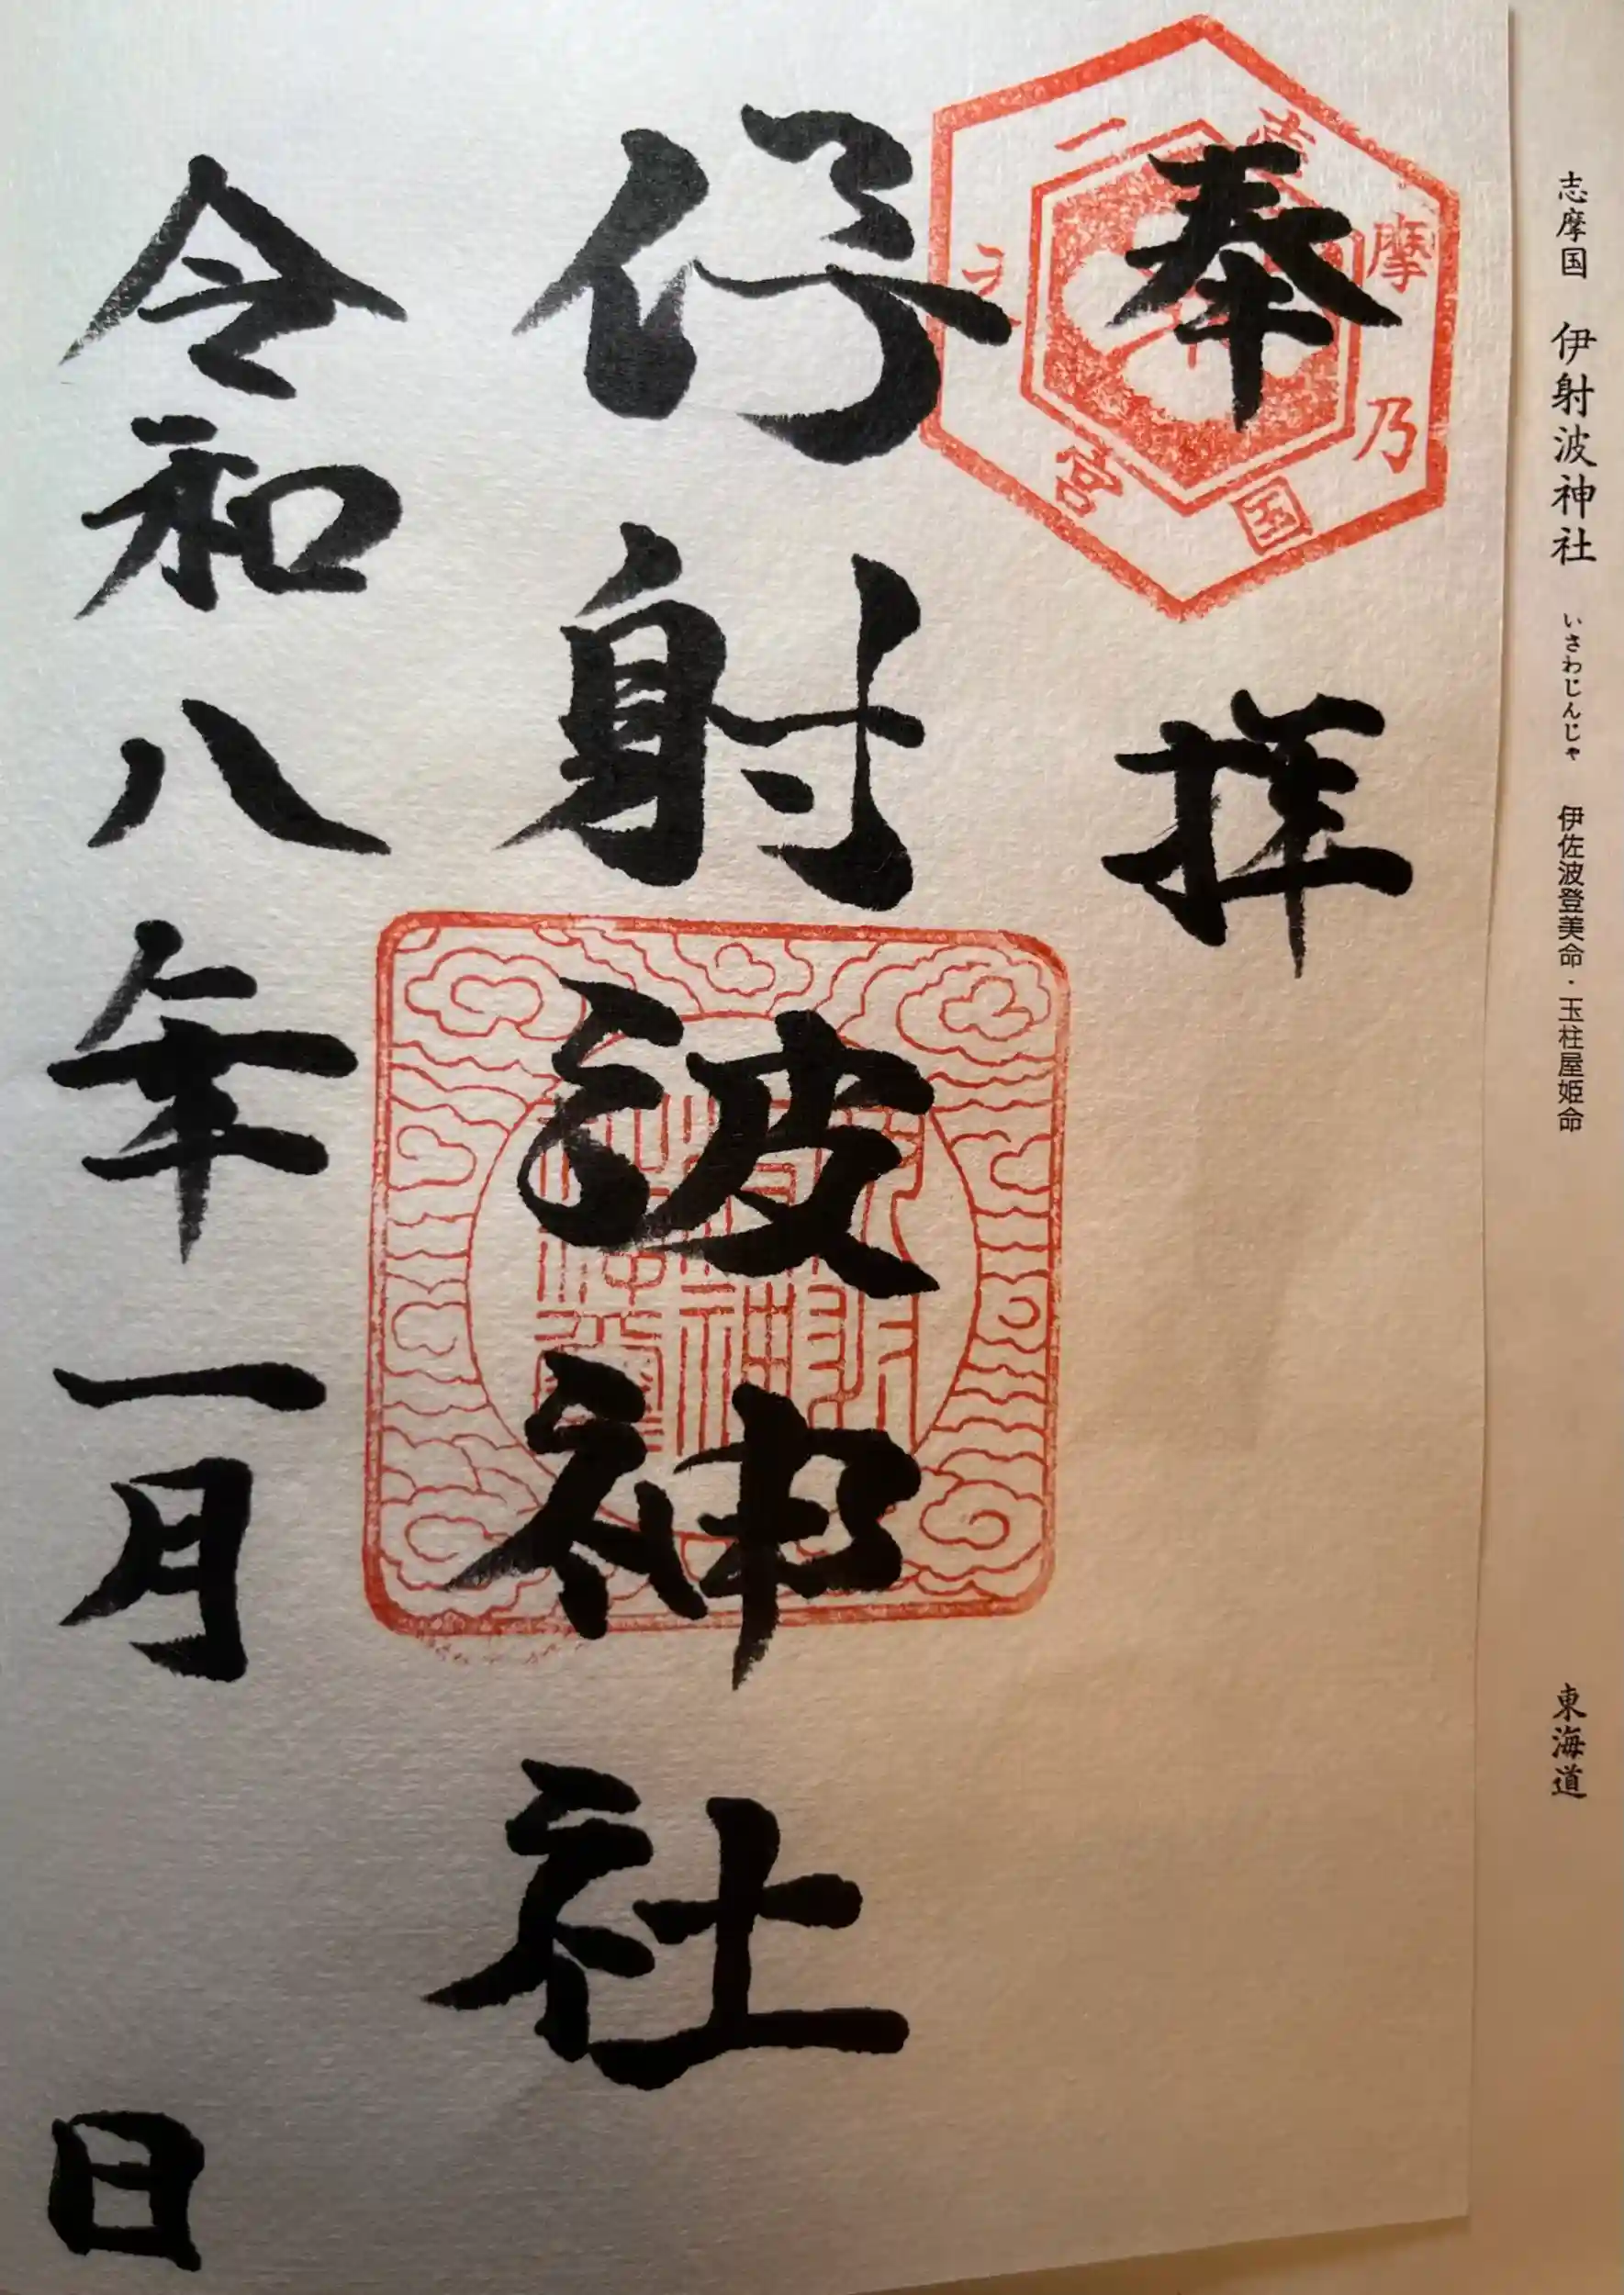 志摩国 伊射波神社 いさわじんじゃ 伊佐波登美命・玉柱屋姫命 東海道
奉拝
摩乃国
一
宮
伊射波神社
令和八年一月 日